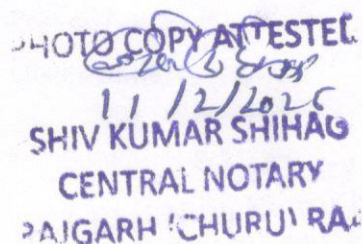 PHOTO COPY ATTESTED
11/2/2026
SHIV KUMAR SHIHAG
CENTRAL NOTARY
RAJGARH (CHURU) RAJ.